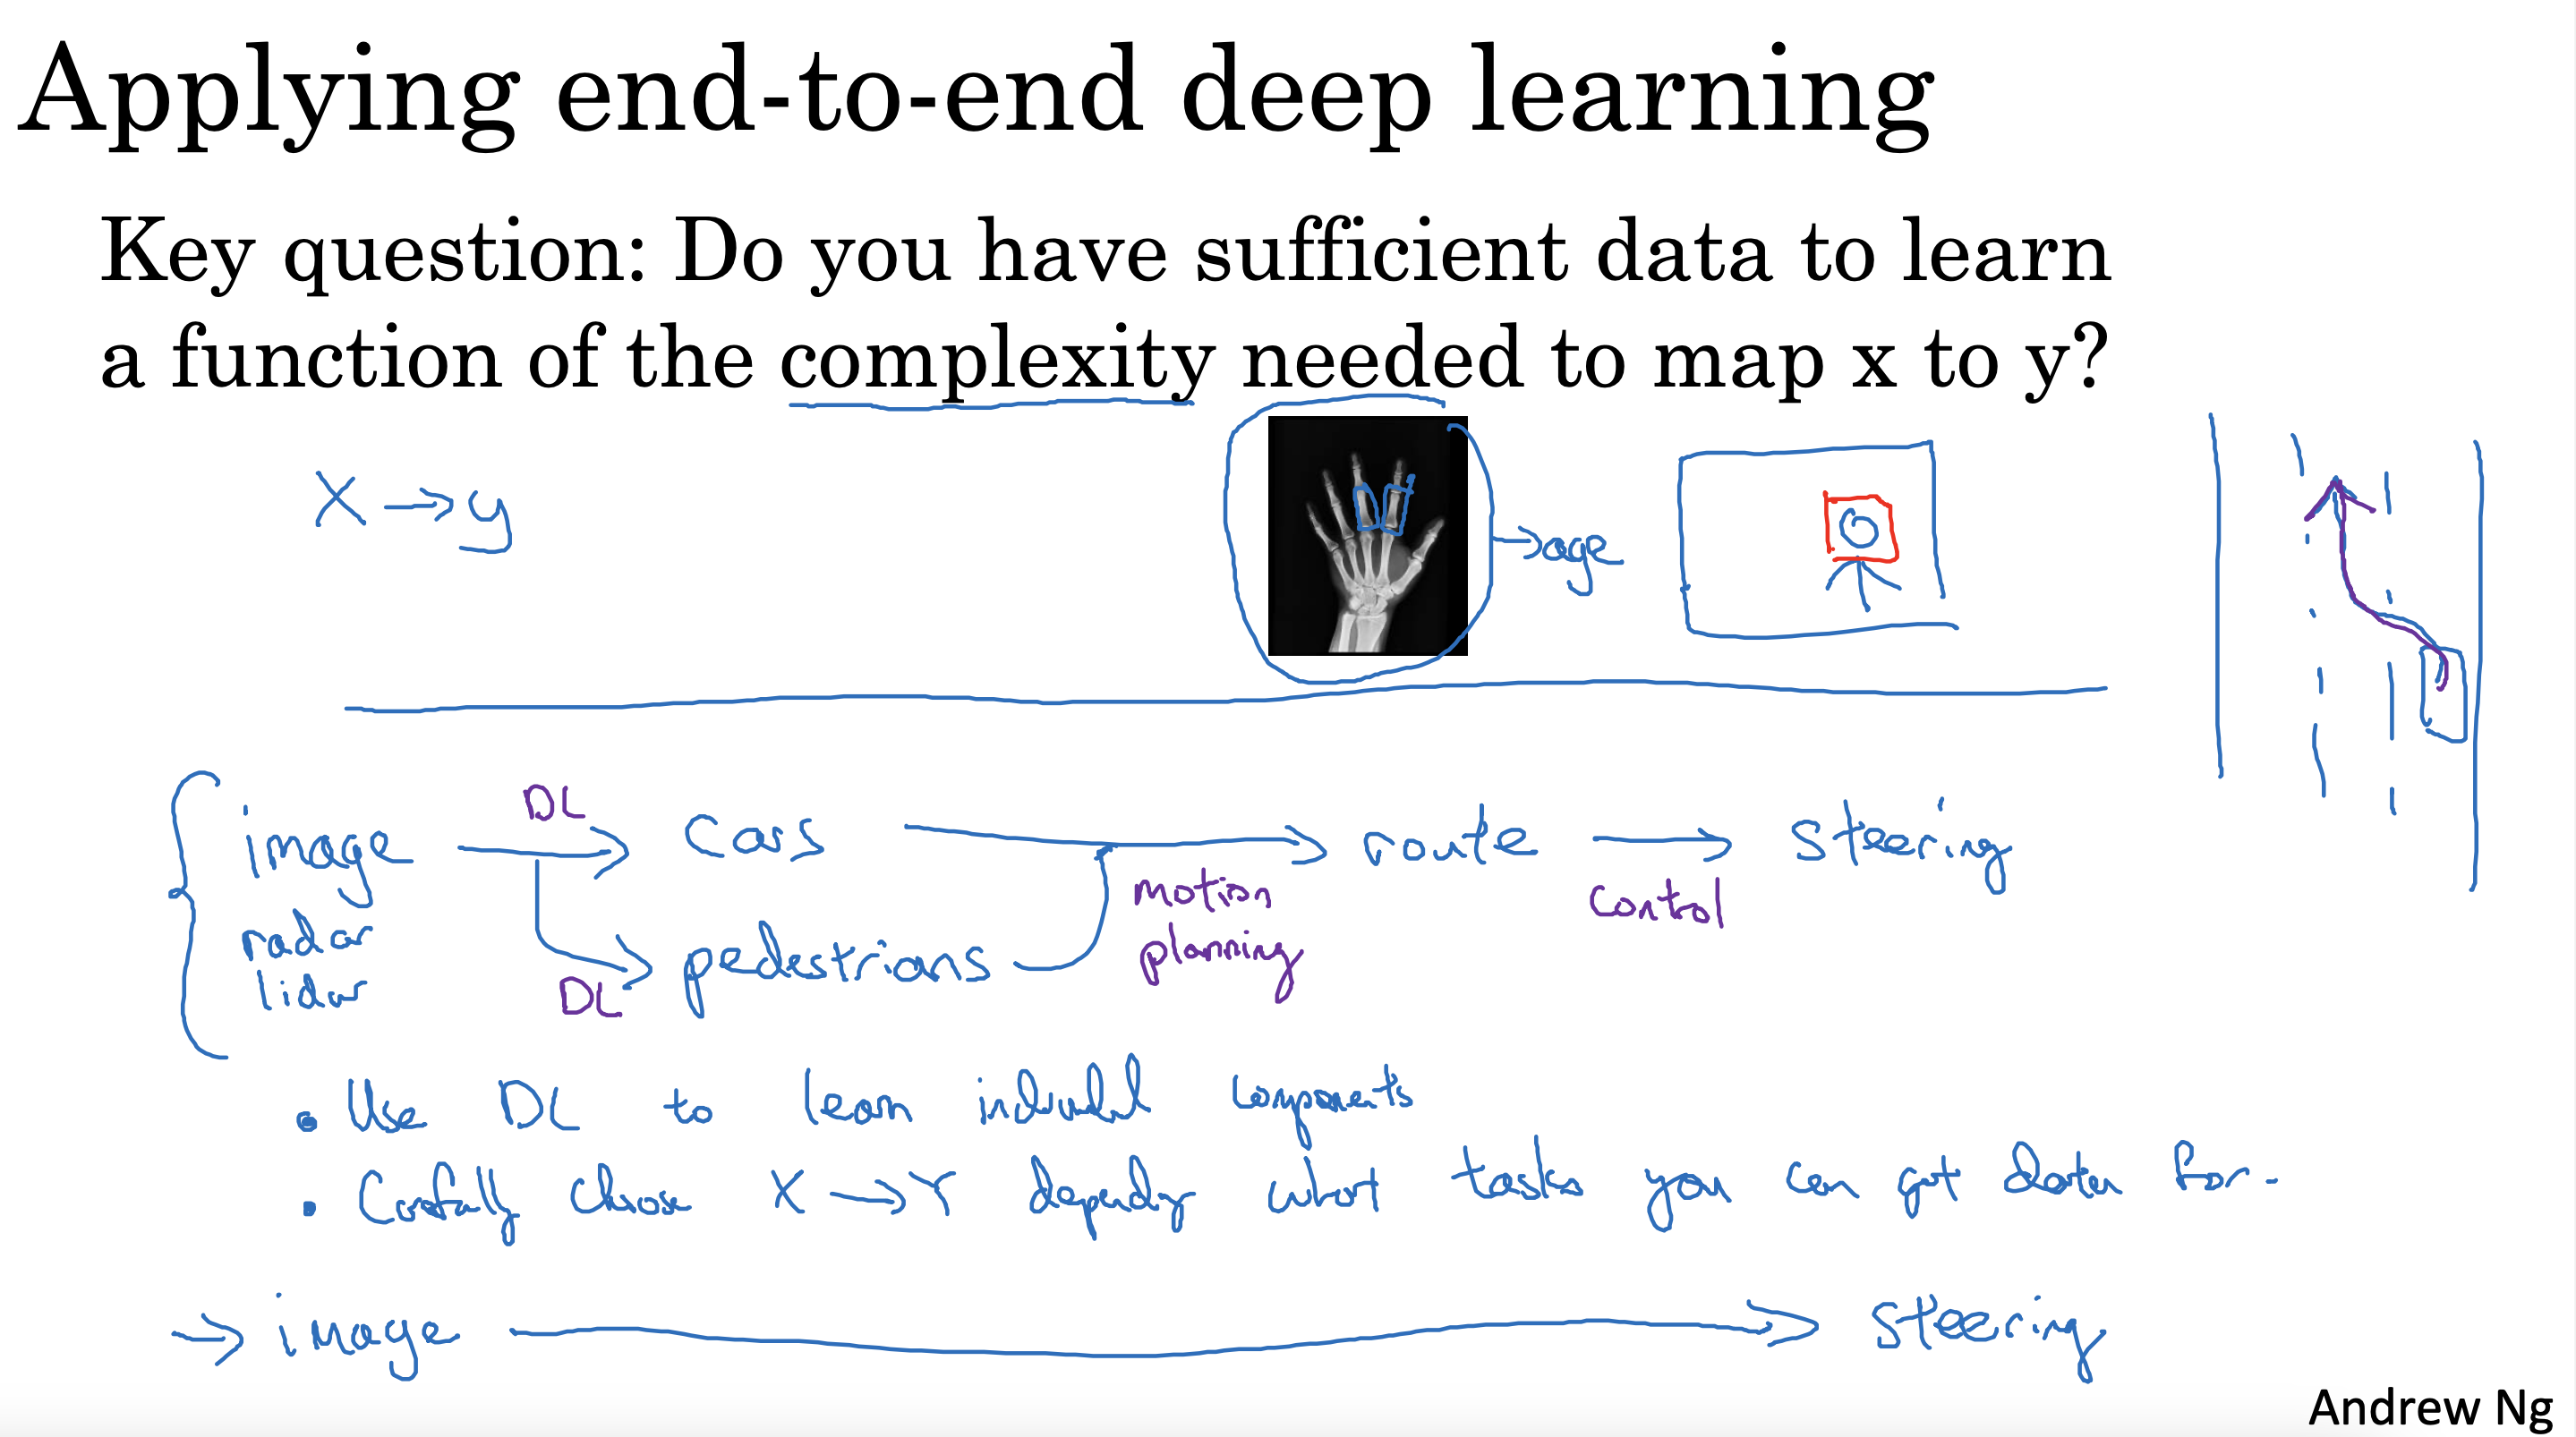 Applying end-to-end deep learning
Key question: Do you have sufficient data to learn
a function of the complexity needed to map x to y?
X → y
→ age
DL
image → cars → route → steering
motion
planning
control
radar
lidar
pedestrians
DL
• Use DL to learn individual components
• Carefully choose X → Y depending what tasks you can get data for.
→ image → steering
Andrew Ng